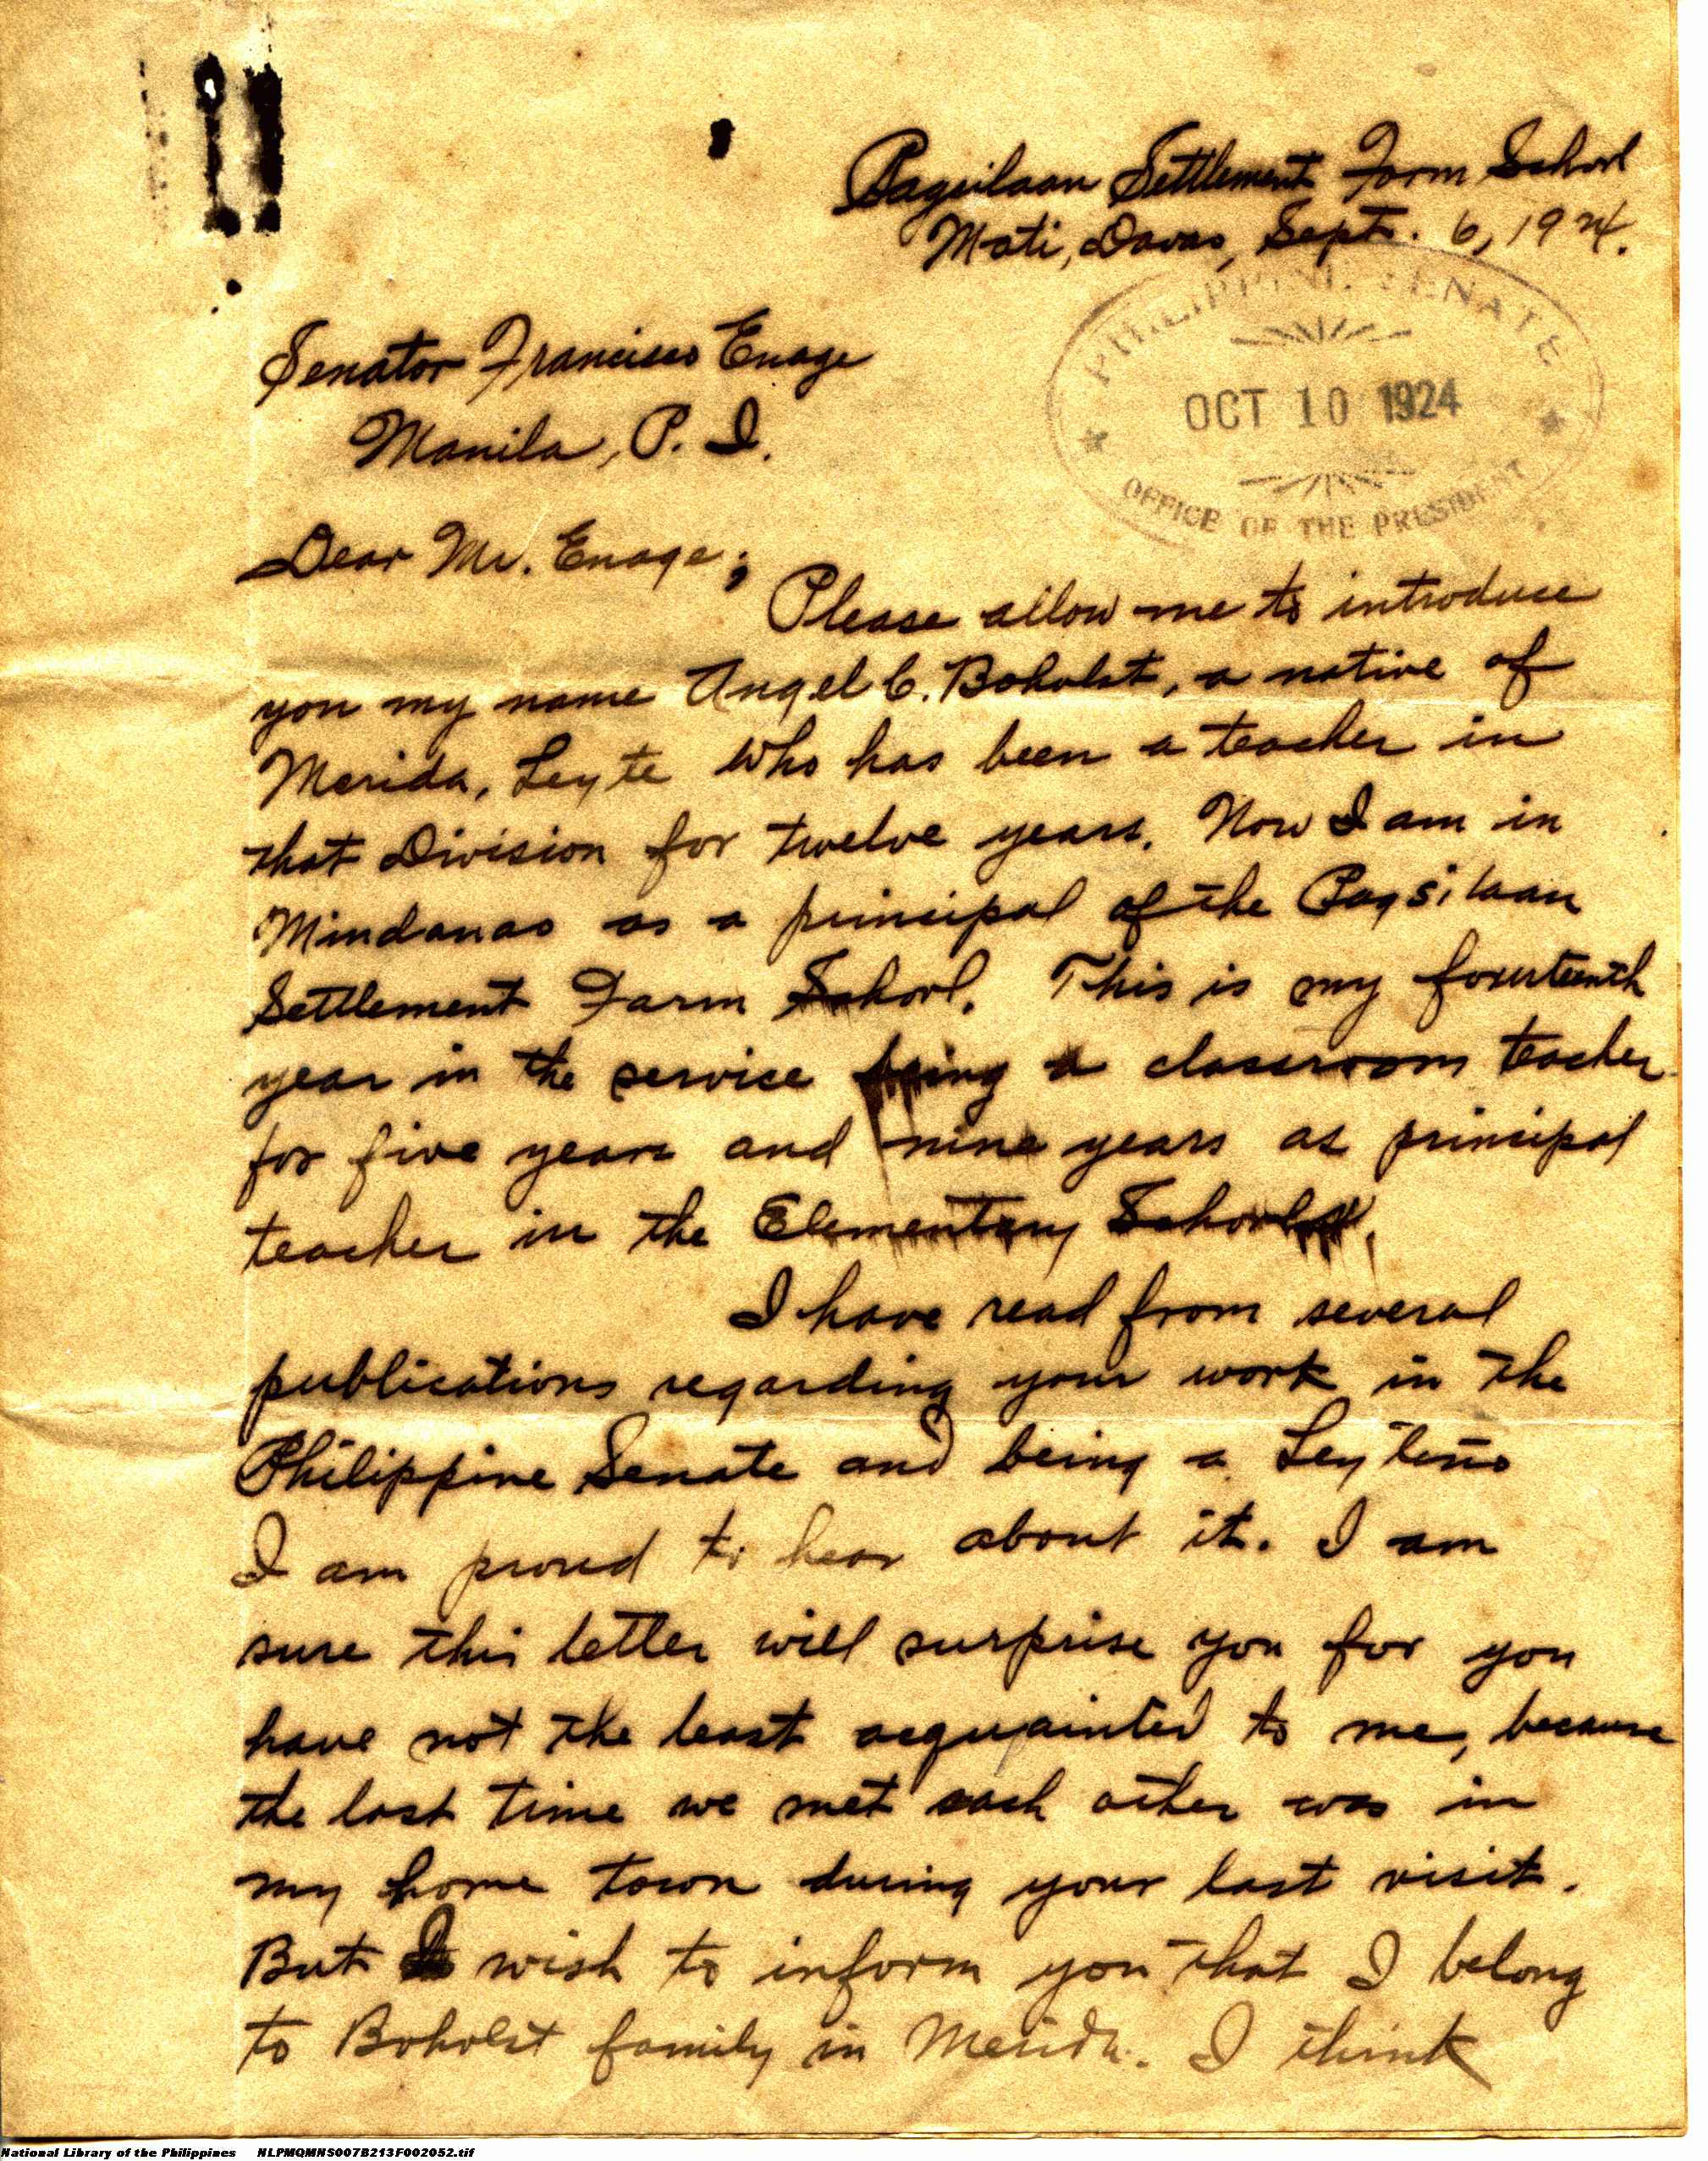 Pagsilaan Settlement Farm School
Mati, Davao, Sept. 6, 1924.
PHILIPPINE SENATE
OCT 10 1924
OFFICE OF THE PRESIDENT
Senator Francisco Enage
Manila, P. I.
Dear Mr. Enage;
Please allow me to introduce
you my name Angel C. Boholst, a native of
Merida, Leyte who has been a teacher in
that Division for twelve years. Now I am in
Mindanao as a principal of the Pagsilaan
Settlement Farm School. This is my fourteenth
year in the service being a classroom teacher
for five years and nine years as principal
teacher in the Elementary Schools.
I have read from several
publications regarding your work in the
Philippine Senate and being a Leyteño
I am proud to hear about it. I am
sure this letter will surprise you for you
have not the least acquainted to me, because
the last time we met each other was in
my home town during your last visit.
But I wish to inform you that I belong
to Boholst family in Merida. I think
National Library of the Philippines NLPMQMNS007B213F002052.tif